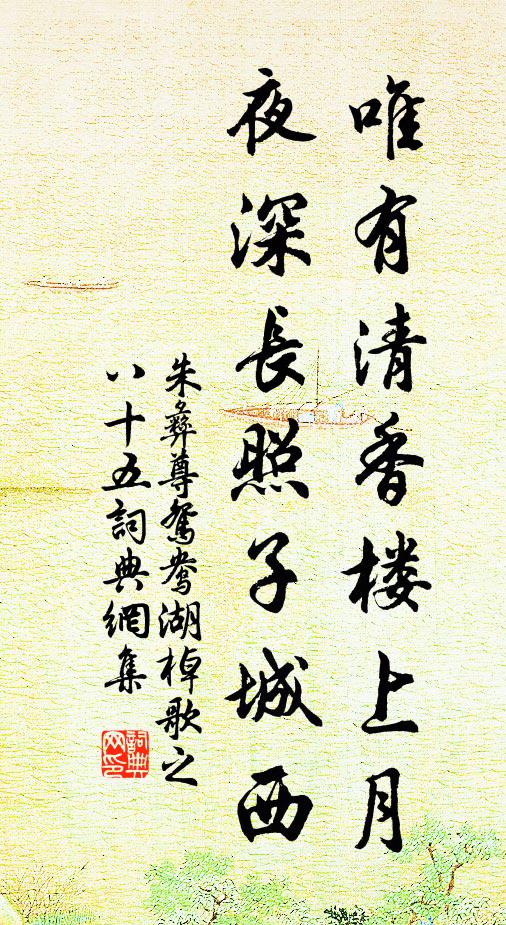 唯有清香楼上月
夜深長照子城西
朱彝尊鴛鴦湖棹歌之
八十五詞典網集
詞典网印